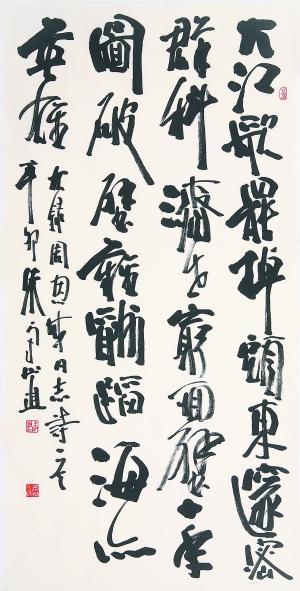 大江歌罷掉頭東邃密
群科濟世窮面壁十年
圖破壁難酬蹈海亦
英雄
右錄周恩來同志詩一首
辛卯朱守道